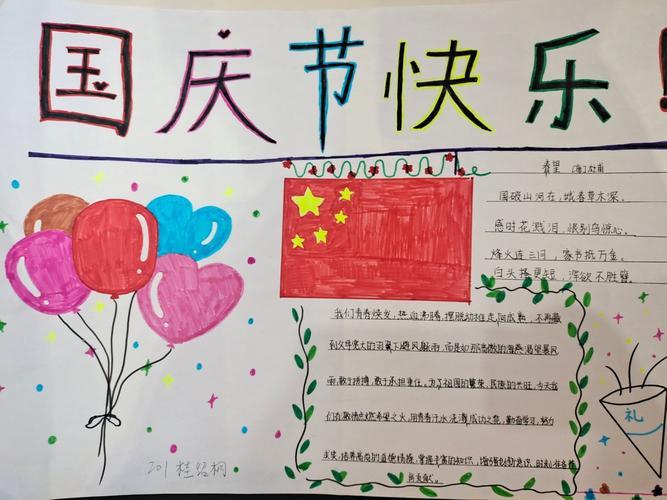 国庆节快乐!
春望 [唐]杜甫
国破山河在,城春草木深。
感时花溅泪,恨别鸟惊心。
烽火连三月,家书抵万金。
白头搔更短,浑欲不胜簪。
我们青春焕发,热血沸腾,摆脱幼稚走向成熟,不再藏
到父母宽大的羽翼下避风躲雨,而是如那高傲的海燕渴望暴风
雨,敢于拼搏,敢于承担重任。为了祖国的繁荣,民族的兴旺,今天我
们点燃希望之火,用青春汗水浇灌成功之花,勤奋学习,努力
求实,培养高尚的道德情操,掌握丰富的知识,增强创新意识,时刻准备
贡献。
礼
201 桂